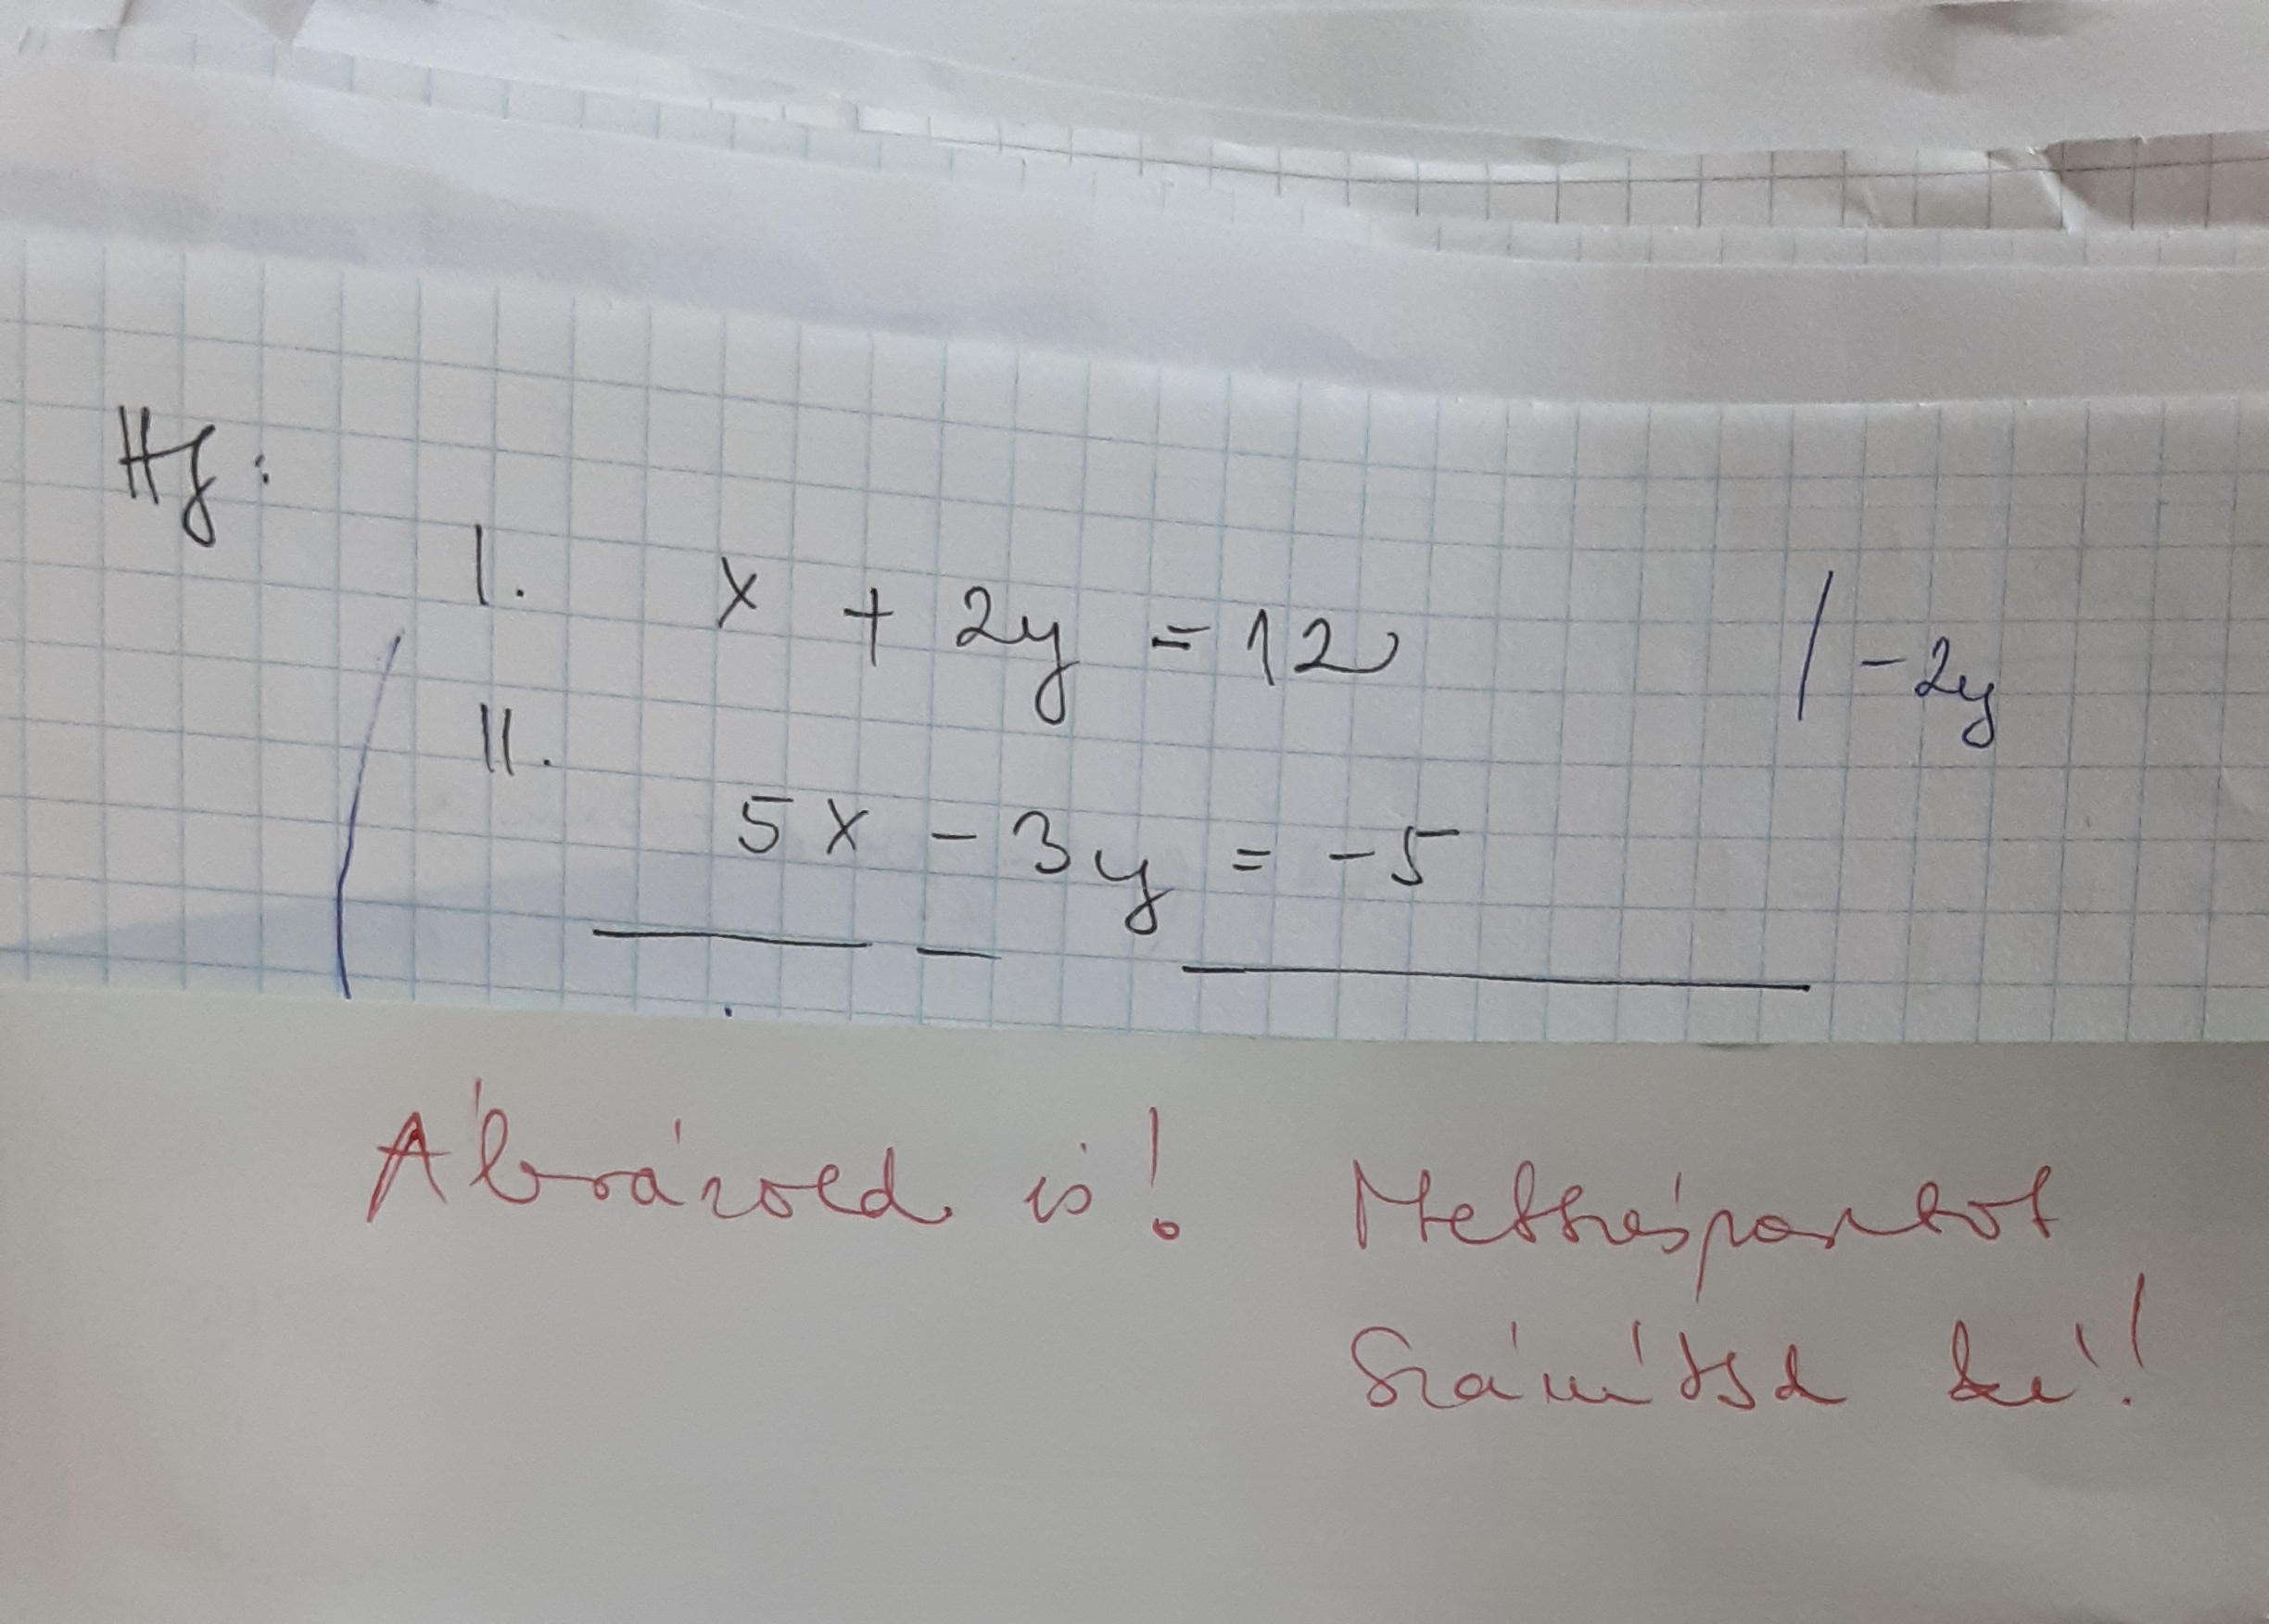 Hf:
I. x + 2y = 12 / -2y
II.
5x - 3y = -5
Ábrázold is! Metszéspontot
Számítsd ki!